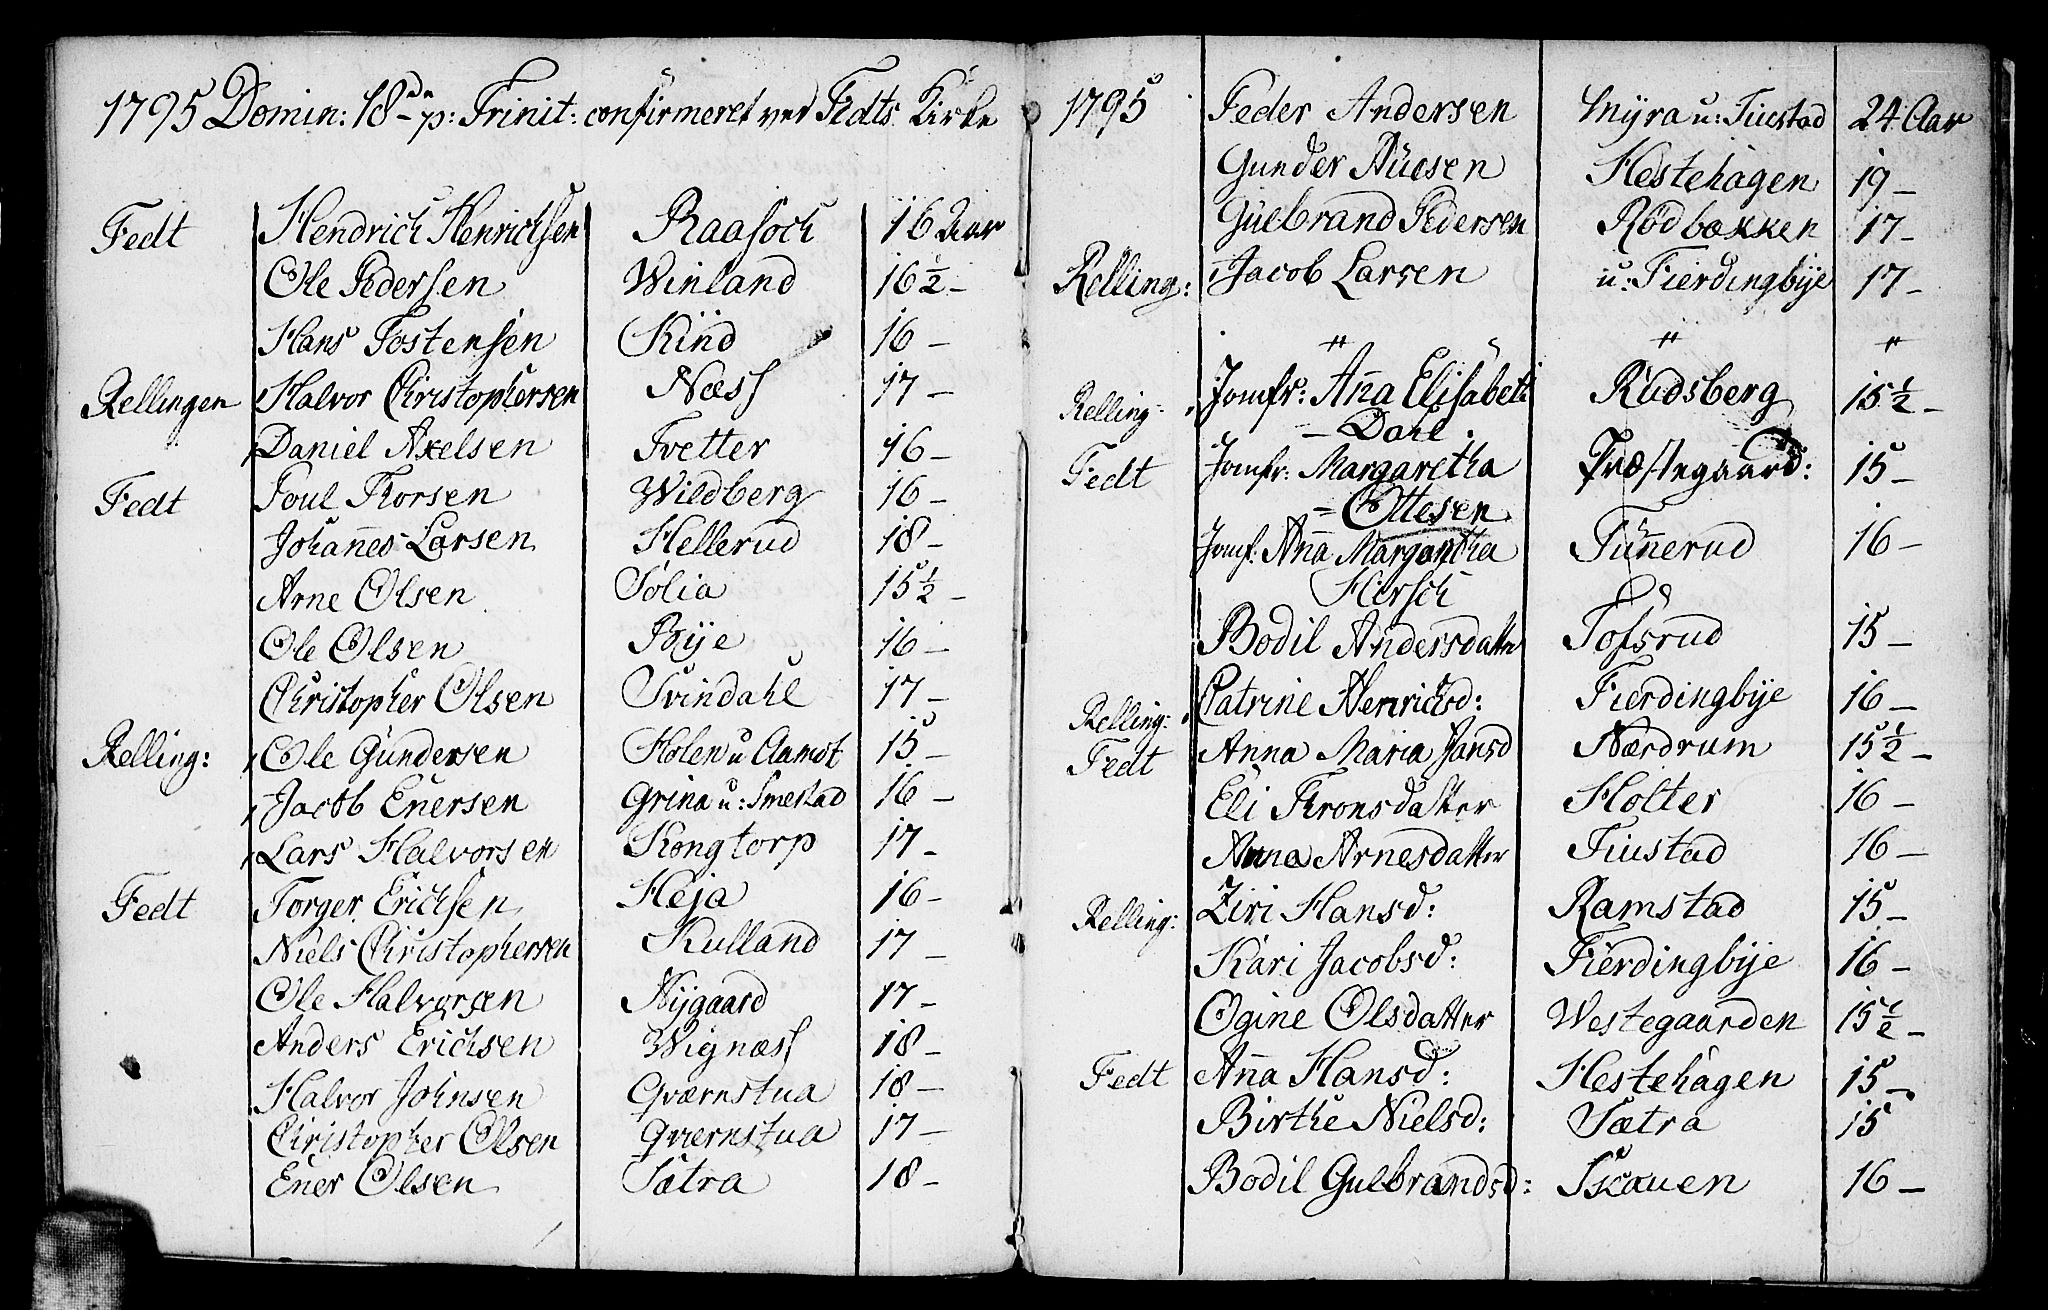 1795 Domin: 18de p: Trinit: confirmeret ved Fedts Kirke
Fedt Hendrich Henrichsen Raasoch 16 Aar
Ole Pedersen Winland 16 1/2 -
Hans Tostensen Kind 16 -
Rellingen Halvor Christophersen Næss 17 -
Daniel Axelsen Tvetter 16 -
Fedt Poul Thorsen Wildberg 16 -
Johannes Larsen Hellerud 18 -
Arne Olsen Solia 15 1/2 -
Ole Olsen Bye 16 -
Christopher Olsen Svindahl 17 -
Relling: Ole Gundersen Holen u Aamot 15 -
Jacob Enersen Grina u: Smestad 16 -
Lars Halvorsen Kongtorp 17 -
Fedt Torger Erichsen Heja 16 -
Niels Christophersen Kulland 17 -
Ole Halvorsen Nygaard 17 -
Anders Erichsen Wignæss 18 -
Halvor Johnsen Qværnstua 18 -
Christopher Olsen Qværnstua 17 -
Ener Olsen Sætra 18 -
1795 Peder Andersen Myra u: Tiustad 24 Aar
Gunder Hestehagen 19 -
Gulbrand Pedersen Rödbækken 17 -
Relling: Jacob Larsen u: Fierdingbye 17 -
" " "
Relling: Jomfr: Anna Elisabeth Rudsberg 15 1/2 -
- Dahl
Fedt Jomfr: Margaretha Præstegaard: 15 -
- Ottesen
Jomf: Anna Margaretha Tünnerud 16 -
Hersch
Bodil Andersdatter Tofsrud 15 -
Relling: Catrine Henrichsd: Fierdingbye 16 -
Fedt Anna Maria Jansd Nærdrum 15 1/2 -
Eli Thronsdatter Holter 16 -
Anna Arnesdatter Tiustad 16 -
Relling: Ziri Hansd: Ramstad 15 -
Kari Jacobsd: Fierdingbye 16 -
Ogine Olsdatter Westegaarden 15 1/2 -
Fedt Anna Hansd: Hestehagen 15 -
Birthe Nielsd: Sætra 15
Bodil Gulbrandsd: Skauen 16 -